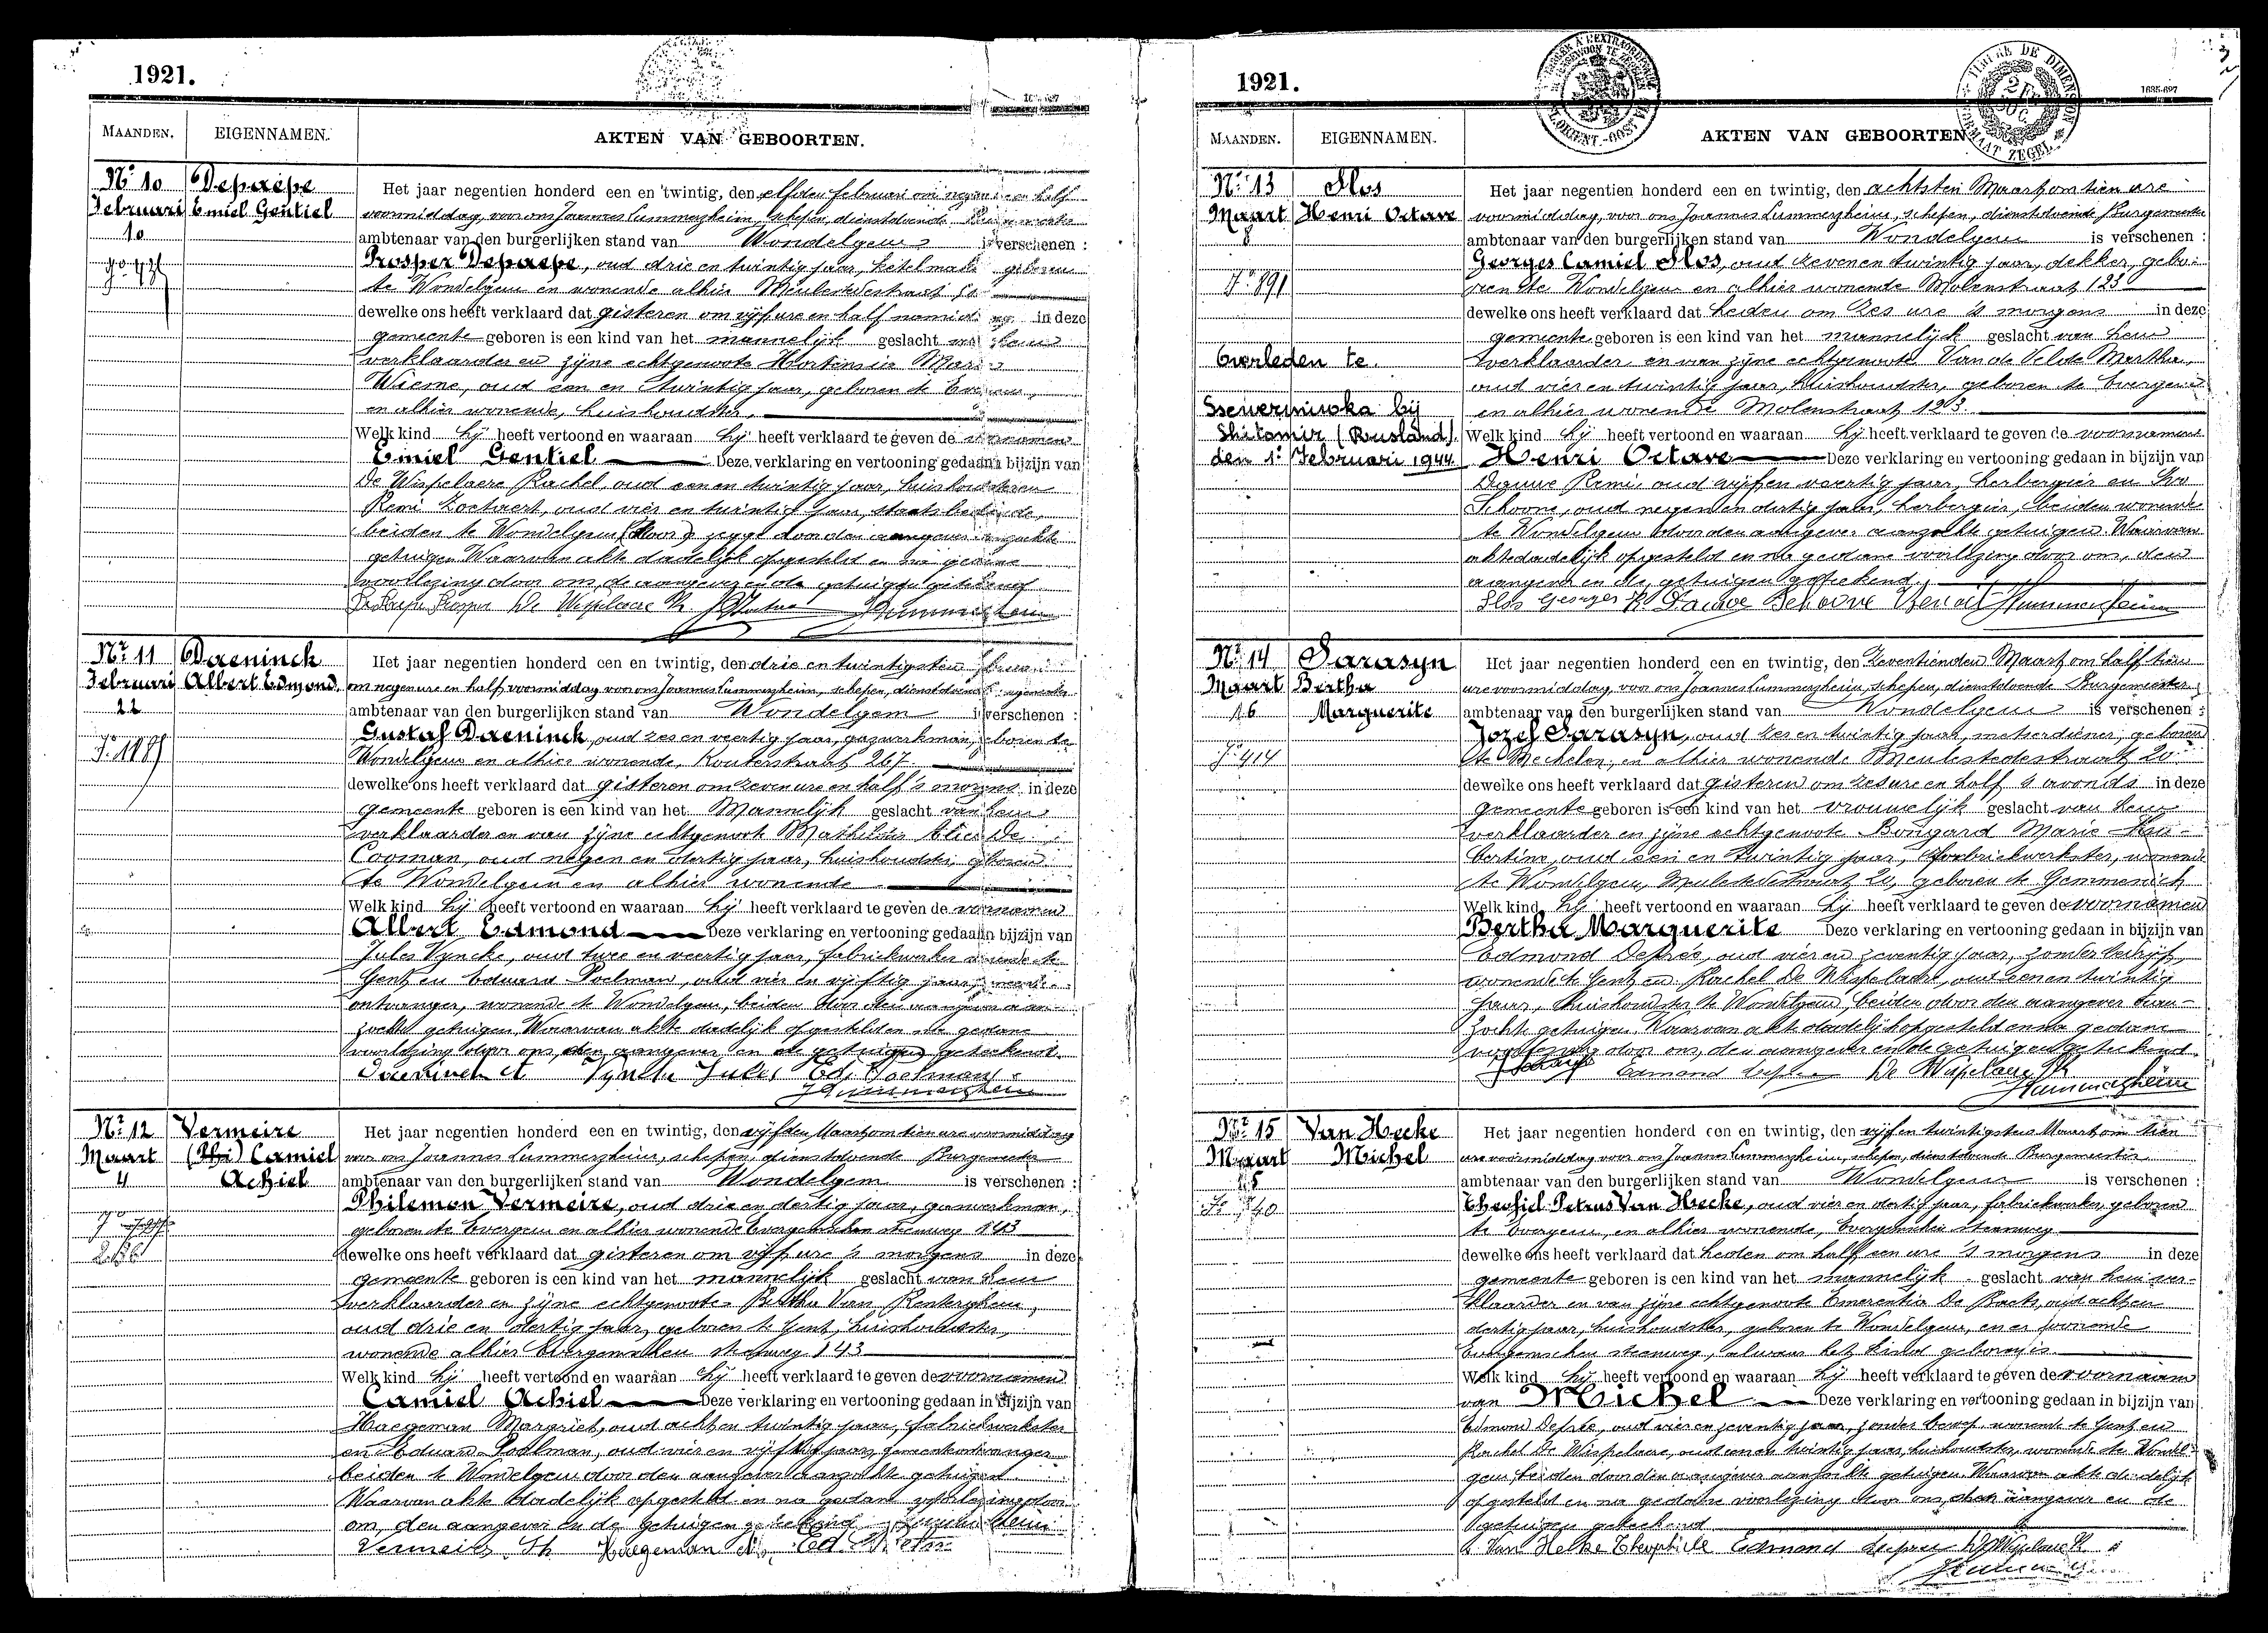 1921.
MAANDEN. EIGENNAMEN. AKTEN VAN GEBOORTEN.
Nr 10 Depaepe Het jaar negentien honderd een en twintig, den elfden Februari om negen en half
Februari Emiel Gentiel voormiddag, voor ons Joannes Lummerzheim, schepen, dienstdoende
10 ambtenaar van den burgerlijken stand van Wondelgem is verschenen :
Prosper Depaepe, oud drie en twintig jaar, ketelmaker geboren
te Wondelgem en wonende alhier Meulestedestraat
dewelke ons heeft verklaard dat gisteren om vijf ure en half namiddag in deze
gemeente geboren is een kind van het mannelijk geslacht van hem
verklaarder en zijne echtgenoote Hortensia Maria
Wieme, oud een en twintig jaar, geboren te Evergem,
en alhier wonende, huishoudster.
Welk kind hij heeft vertoond en waaraan hij heeft verklaard te geven de voornamen
Emiel Gentiel Deze verklaring en vertooning gedaan in bijzijn van
De Wispelaere Rachel, oud een en twintig jaar, huishoudster en
Remi Zoetaert, oud vier en twintig jaar, staatsbediende,
beiden te Wondelgem door den aangever aanzochte
getuigen Waarvan akte dadelijk opgesteld en na gedane
voorlezing door ons, de aangever en de getuigen geteekend
De Paepe Prosper De Wispelaere R.
Nr 11 Daeninck Het jaar negentien honderd een en twintig, den drie en twintigsten Februari
Februari Albert Edmond om negen ure en half voormiddag voor ons Joannes Lummerzheim, schepen, dienstdoende Burgemeester
22 ambtenaar van den burgerlijken stand van Wondelgem is verschenen :
Gustaf Daeninck, oud zes en veertig jaar, gazwerkman, geboren te
Wondelgem en alhier wonende, Kouterstraat 267.
dewelke ons heeft verklaard dat gisteren om zeven ure en half 's morgens in deze
gemeente geboren is een kind van het Mannelijk geslacht van hem
verklaarder en van zijne echtgenoote Mathilde Alice De
Cooman, oud negen en dertig jaar, huishoudster, geboren
te Wondelgem en alhier wonende
Welk kind hij heeft vertoond en waaraan hij heeft verklaard te geven de voornamen
Albert Edmond Deze verklaring en vertooning gedaan in bijzijn van
Jules Vyncke, oud twee en veertig jaar, fabriekwerker wonende te
Gent en Eduard Poelman, oud vier en vijftig jaar, gemeente-
ontvanger, wonende te Wondelgem, beiden door den aangever aan-
zochte getuigen, Waarvan akte dadelijk opgesteld en na gedane
voorlezing door ons, den aangever en de getuigen geteekend.
Vyncke Jules Ed. Poelman
Nr 12 Vermeire Het jaar negentien honderd een en twintig, den vijfden Maart om tien ure voormiddag
Maart Camiel voor ons Joannes Lummerzheim, schepen, dienstdoende Burgemeester
4 Achiel ambtenaar van den burgerlijken stand van Wondelgem is verschenen :
Philemon Vermeire, oud drie en dertig jaar, gazwerkman,
geboren te Evergem en alhier wonende Evergemschen steenweg 143
dewelke ons heeft verklaard dat gisteren om vijf ure 's morgens in deze
gemeente geboren is een kind van het mannelijk geslacht van hem
verklaarder en zijne echtgenoote Bertha Van Renterghem,
oud drie en dertig jaar, geboren te Gent, huishoudster,
wonende alhier Evergemschen steenweg 143
Welk kind hij heeft vertoond en waaraan hij heeft verklaard te geven de voornamen
Camiel Achiel Deze verklaring en vertooning gedaan in bijzijn van
Haegeman Margriet, oud acht en twintig jaar, fabriekwerkster
en Eduard Poelman, oud vier en vijftig jaar, gemeenteontvanger
beiden te Wondelgem door den aangever aanzochte getuigen.
Waarvan akte dadelijk opgesteld en na gedane voorlezing door
ons, den aangever en de getuigen geteekend
Haegeman
1921.
1635-697
MAANDEN. EIGENNAMEN. AKTEN VAN GEBOORTEN.
Nr 13 Slos Het jaar negentien honderd een en twintig, den achtsten Maart om tien ure
Maart Henri Octave voormiddag, voor ons Joannes Lummerzheim, schepen, dienstdoende Burgemeester
8 ambtenaar van den burgerlijken stand van Wondelgem is verschenen :
Georges Camiel Slos, oud zeven en twintig jaar, dekker, gebo-
ren te Wondelgem en alhier wonende Molenstraat 123
dewelke ons heeft verklaard dat heden om zes ure 's morgens in deze
gemeente geboren is een kind van het mannelijk geslacht van hem
Overleden te verklaarder en van zijne echtgenoote Van de Velde Martha,
oud vier en twintig jaar, huishoudster, geboren te Evergem
en alhier wonende Molenstraat 123.
Shitomir (Rusland) Welk kind hij heeft vertoond en waaraan hij heeft verklaard te geven de voornamen
den 1 Februari 1944 Henri Octave Deze verklaring en vertooning gedaan in bijzijn van
Remi, oud vijf en veertig jaar, herbergier en
Schoone, oud negen en dertig jaar, herbergier, beiden wonende
te Wondelgem door den aangever aanzochte getuigen Waarvan
akte dadelijk opgesteld en na gedane voorlezing door ons, den
aangever en de getuigen geteekend.
Slos Georges
Nr 14 Sarasyn Het jaar negentien honderd een en twintig, den zeventienden Maart om half tien
Maart Bertha ure voormiddag, voor ons Joannes Lummerzheim, schepen, dienstdoende Burgemeester
16 Marguerite ambtenaar van den burgerlijken stand van Wondelgem is verschenen :
Jozef Sarasyn, oud zes en twintig jaar, metserdiener, geboren
te Mechelen, en alhier wonende Meulestedestraat 20
dewelke ons heeft verklaard dat gisteren om zes ure en half 's avonds in deze
gemeente geboren is een kind van het vrouwelijk geslacht van hem
verklaarder en zijne echtgenoote Bongard Marie Hu-
bertine, oud een en twintig jaar, fabriekwerkster, wonende
te Wondelgem, Meulestedestraat 20, geboren te Gemmenich
Welk kind hij heeft vertoond en waaraan hij heeft verklaard te geven de voornamen
Bertha Marguerite Deze verklaring en vertooning gedaan in bijzijn van
Edmond Deprée, oud vier en zeventig jaar, zonder bedrijf,
wonende te Gent en Rachel De Wispelaere, oud een en twintig
jaar, huishoudster te Wondelgem, beiden door den aangever aan-
zochte getuigen. Waarvan akte dadelijk opgesteld en na gedane
voorlezing door ons, den aangever en de getuigen geteekend.
Edmond De Wispelaere R
Nr 15 Van Hecke Het jaar negentien honderd een en twintig, den vijf en twintigsten Maart om tien
Maart Michel ure voormiddag voor ons Joannes Lummerzheim, schepen, dienstdoende Burgemeester
25 ambtenaar van den burgerlijken stand van Wondelgem is verschenen :
Theofiel Petrus Van Hecke, oud vier en dertig jaar, fabriekwerker, geboren
te Evergem, en alhier wonende, Evergemschen steenweg
dewelke ons heeft verklaard dat heden om half een ure 's morgens in deze
gemeente geboren is een kind van het mannelijk geslacht van hem ver-
klaarder en van zijne echtgenoote Emerentia De Baets, oud acht en
dertig jaar, huishoudster, geboren te Wondelgem, en er wonende
Evergemschen steenweg, alwaar het kind geboren is.
Welk kind hij heeft vertoond en waaraan hij heeft verklaard te geven de voornaam
van Michel Deze verklaring en vertooning gedaan in bijzijn van
Edmond Deprée, oud vier en zeventig jaar, zonder beroep wonende te Gent en
Rachel De Wispelaere, oud een en twintig jaar, huishoudster, wonende te Wondel-
gem, beiden door den aangever aanzochte getuigen. Waarvan akte dadelijk
opgesteld en na gedane voorlezing door ons, den aangever en de
getuigen geteekend
Van Hecke Theophiele Edmond De Wispelaere R